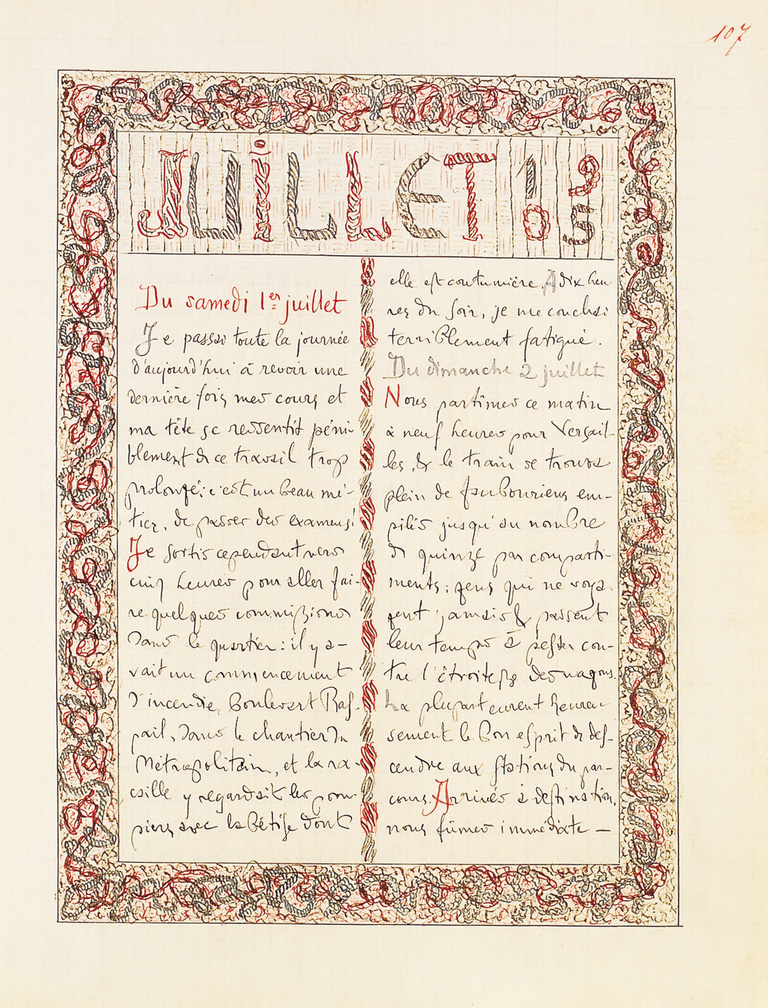 107
JUILLET 1905
Du samedi 1er juillet
Je passai toute la journée
d'aujourd'hui à revoir une
dernière fois mes cours et
ma tête se ressentit péni-
blement de ce travail trop
prolongé; c'est un beau mé-
tier, de passer des examens!
Je sortis cependant vers
cinq heures pour aller fai-
re quelques commissions
dans le quartier: il y a-
vait un commencement
d'incendie, Boulevert Ras-
pail, dans le chantier du
Métropolitain, et la ra-
caille y regardait les pom-
piers avec la bêtise dont
elle est coutumière. A dix heu-
res du soir, je me couchai
terriblement fatigué.
Du dimanche 2 juillet
Nous partîmes ce matin
à neuf heures pour Versail-
les, & le train se trouva
plein de faubouriens em-
pilés jusqu'au nombre
de quinze par comparti-
ments; gens qui ne voya-
gent jamais & passent
leur temps à pester con-
tre l'étroitesse des wagons.
La plupart eurent heureu-
sement le bon esprit de des-
cendre aux stations du par-
cours. Arrivés à destination,
nous fûmes immédiate-